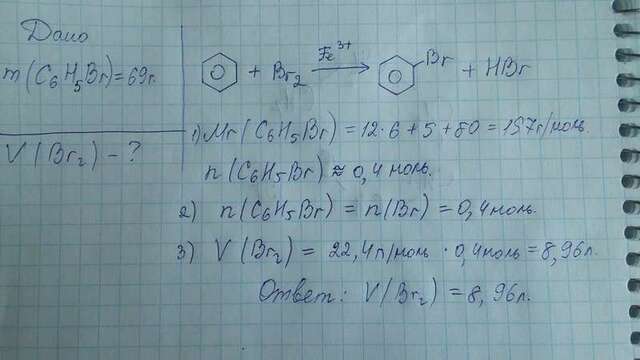 Дано
m(C6H5Br)=69г.
V(Br2) - ?
+ Br2 Fe3+ Br + HBr
1) Mr(C6H5Br) = 12·6+5+80 = 157г/моль.
n(C6H5Br) ≈ 0,4 моль.
2) n(C6H5Br) = n(Br) = 0,4моль.
3) V(Br2) = 22,4л/моль · 0,4моль = 8,96л.
Ответ: V(Br2) = 8,96л.